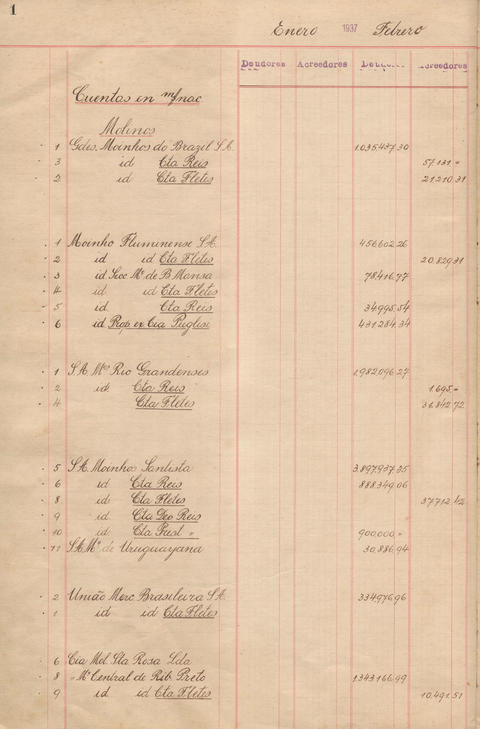 1
Enero 1937 Febrero
Deudores Acreedores Deudores Acreedores
Cuentas en m/nac
Molinos
1 Gdes. Moinhos do Brazil S.A. 1.035.437.30
3 id Cta Reis 57.131.=
2 id Cta Fletes 21.210.31
1 Moinho Fluminense S.A. 456.602.26
2 id id Cta Fletes 20.829.31
3 id Secc Mº de B. Mansa 78.416.77
4 id id Cta Fletes
5 id Cta Reis 34.995.54
6 id Prop. ex Cia Puglisi 431.284.34
1 S.A. Mºs Rio Grandenses 1.982.096.27
2 id Cta Reis 1.695.=
4 Cta Fletes 36.842.72
5 S.A. Moinhos Santista 3.897.937.35
6 id Cta Reis 888.349.06
8 id Cta Fletes 37.712.42
9 id Cta Dep Reis
10 id Cta Prest " 900.000.=
11 S.A. Mº de Uruguayana 30.886.94
2 União Merc Brasileira S.A. 334.976.96
1 id id Cta Fletes
6 Cia Mol. Sta Rosa Lda
8 " Mº Central de Rib. Preto 1.343.166.99
9 id id Cta Fletes 10.491.51